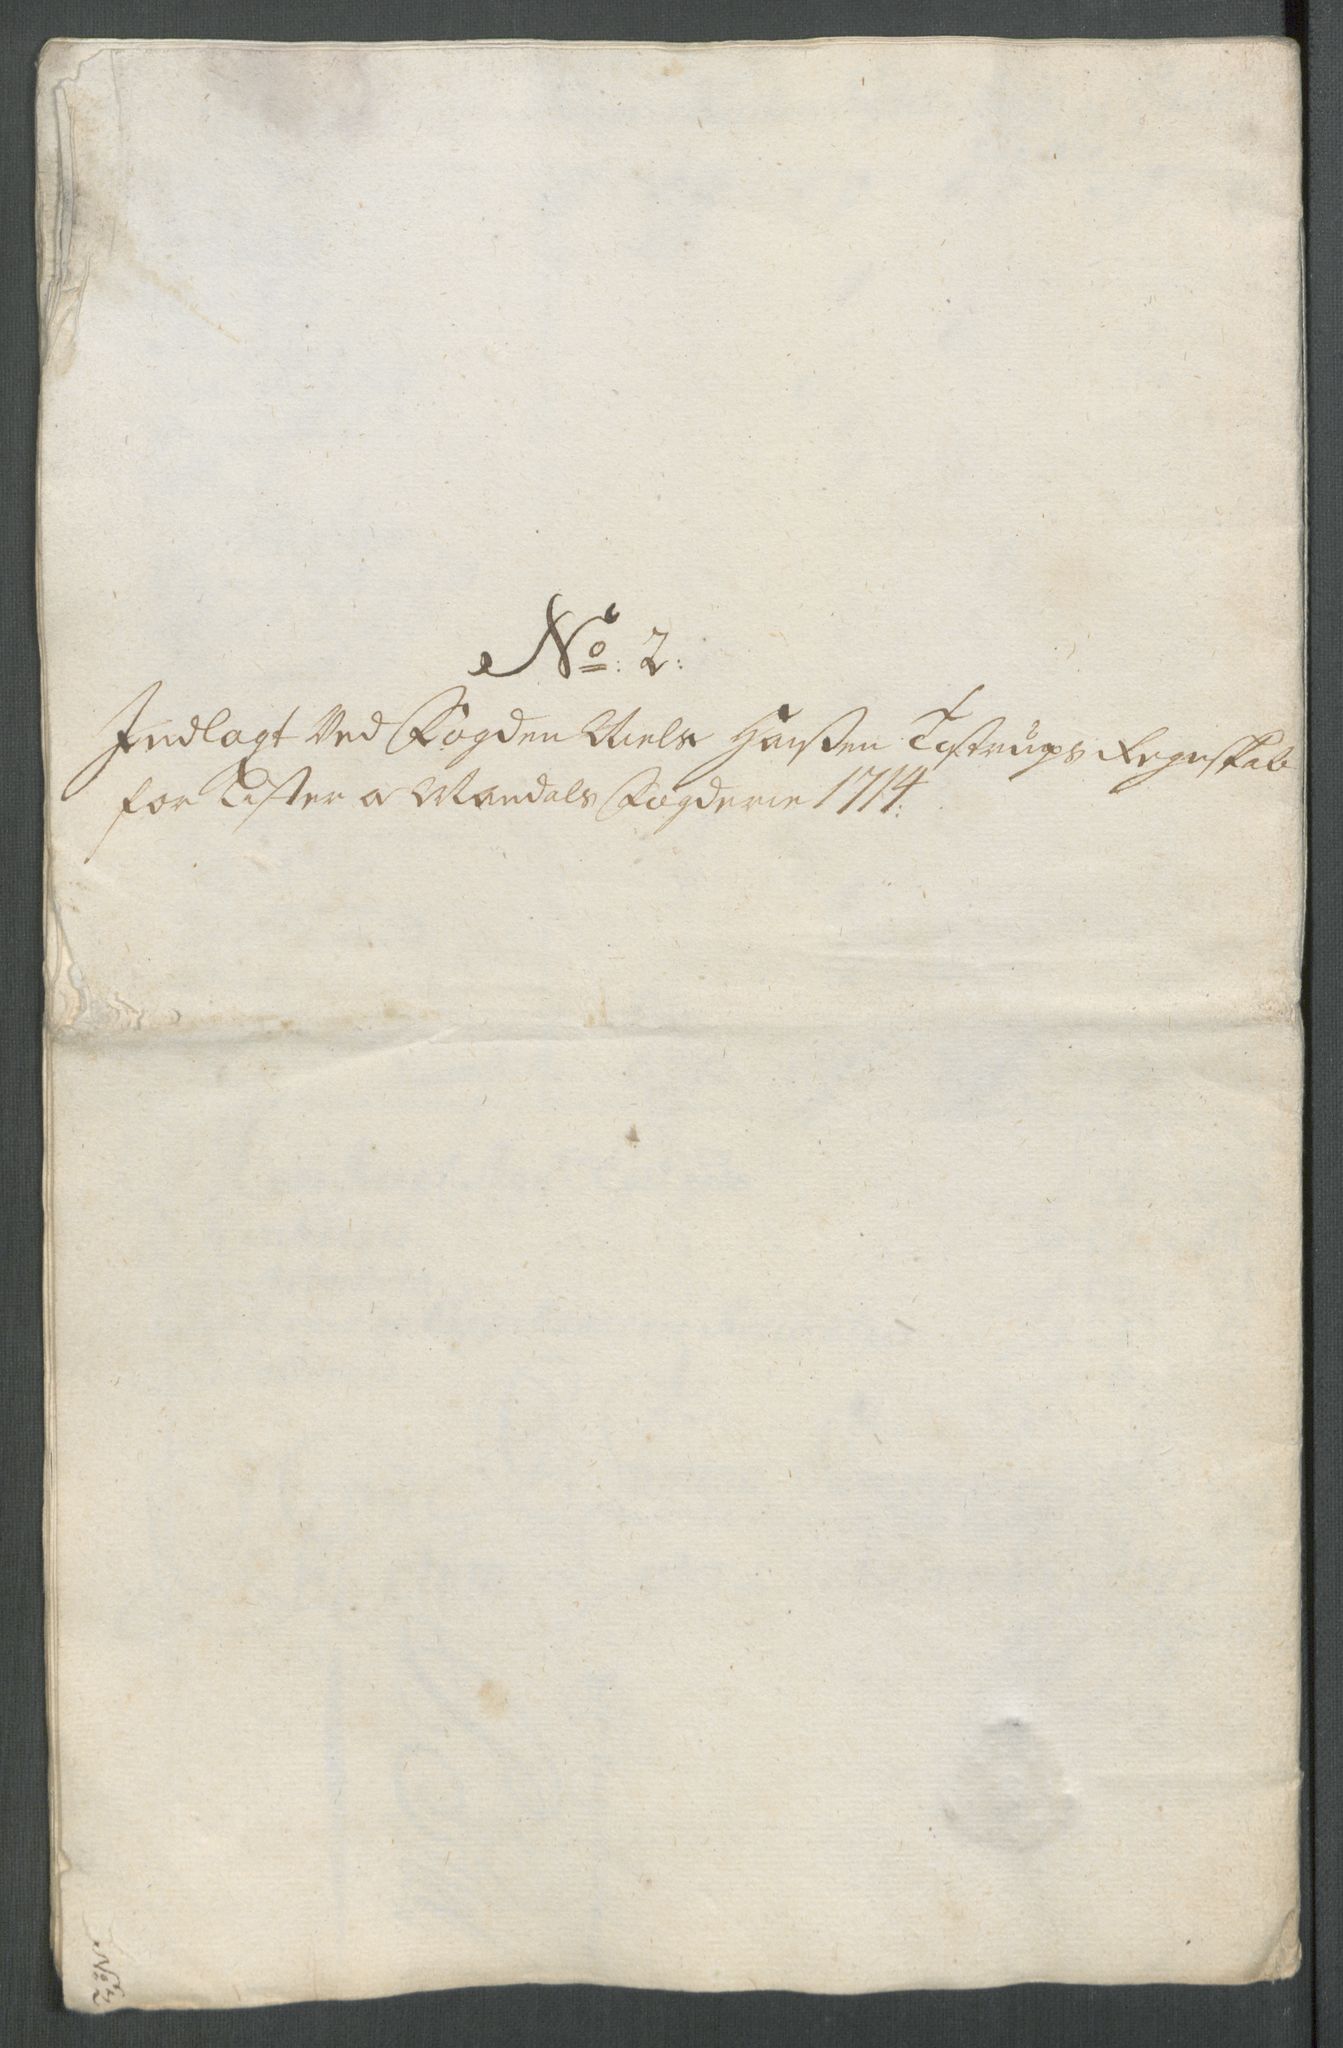 No: 2:
Indlagt Ved Fogden Niels Hansen Tostrups Regnskab
for Lister og Mandals Fogderie 1714:
No 2